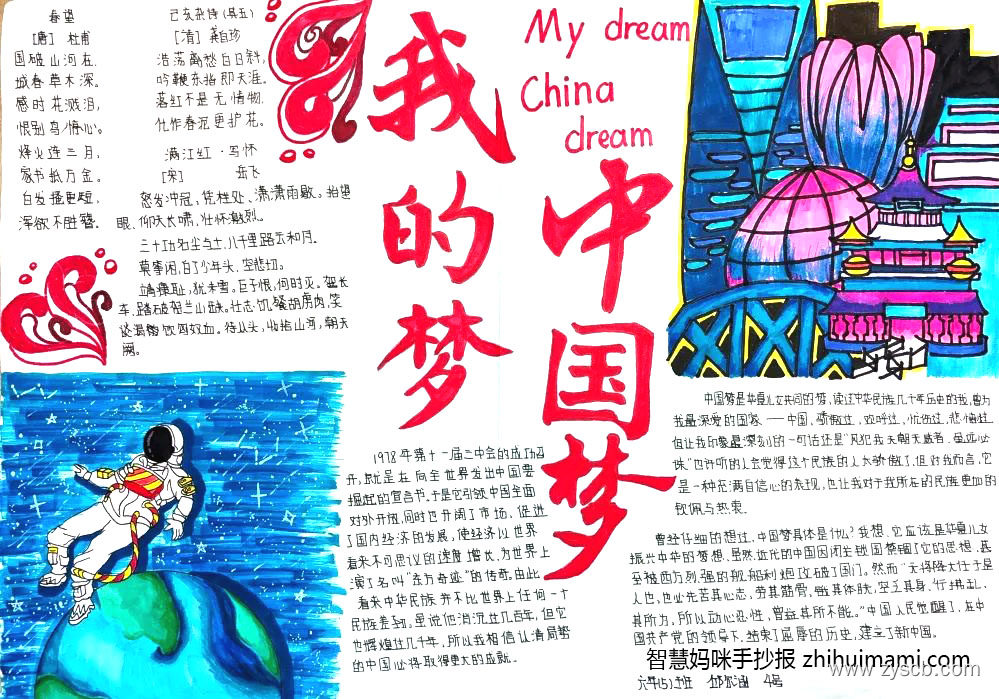 春望
[唐] 杜甫
国破山河在,
城春草木深。
感时花溅泪,
恨别鸟惊心。
烽火连三月,
家书抵万金。
白发搔更短,
浑欲不胜簪。
己亥杂诗(其五)
[清] 龚自珍
浩荡离愁白日斜,
吟鞭东指即天涯。
落红不是无情物,
化作春泥更护花。
满江红·写怀
[宋] 岳飞
怒发冲冠,凭栏处、潇潇雨歇。抬望
眼,仰天长啸,壮怀激烈。
三十功名尘与土,八千里路云和月。
莫等闲,白了少年头,空悲切。
靖康耻,犹未雪。臣子恨,何时灭。驾长
车,踏破贺兰山缺。壮志饥餐胡虏肉,笑
谈渴饮匈奴血。待从头,收拾山河,朝天
阙。
我的梦
中国梦
My dream
China
dream
1978年第十一届三中全的成功召
开,就是在向全世界发出中国要
崛起的宣言书,于是它引领中国全面
对外开放,同时也开阔了市场,促进
了国内经济的发展,使经济以世界
看来不可思议的速度增长,为世界上
演了名叫"东方奇迹"的传奇。由此
看来中华民族并不比世界上任何一个
民族差劲,虽说他消沉过几百年,但它
也辉煌过几千年,所以我相信认清局势
的中国必将取得更大的成就。
中国梦是华夏儿女共同的梦,读过中华民族几千年历史的我,曾为
我最深爱的国家——中国,骄傲过,欢呼过,忧伤过,悲愤过
但让我印象最深刻的一句话还是"凡犯我天朝天威者,虽远必
诛"也许听的人会觉得这个民族的人太骄傲了,但对我而言,它
是一种充满自信心的表现,也让我对于我所在的民族更加的
钦佩与热爱。
曾经仔细的想过,中国梦具体是什么?我想,它应该是华夏儿女
振兴中华的梦想,虽然近代的中国因闭关锁国禁锢了它的思想,甚
至被西方列强的舰船利炮攻破了国门。然而"天将降大任于是
人也,也必先苦其心志,劳其筋骨,饿其体肤,空乏其身,行拂乱
其所为,所以动心忍性,曾益其所不能。"中国人民觉醒了,在中
国共产党的领导下,结束了屈辱的历史,建立了新中国。
智慧妈咪手抄报 zhihuimami.com
www.zyscb.com
六年(5)班 4号